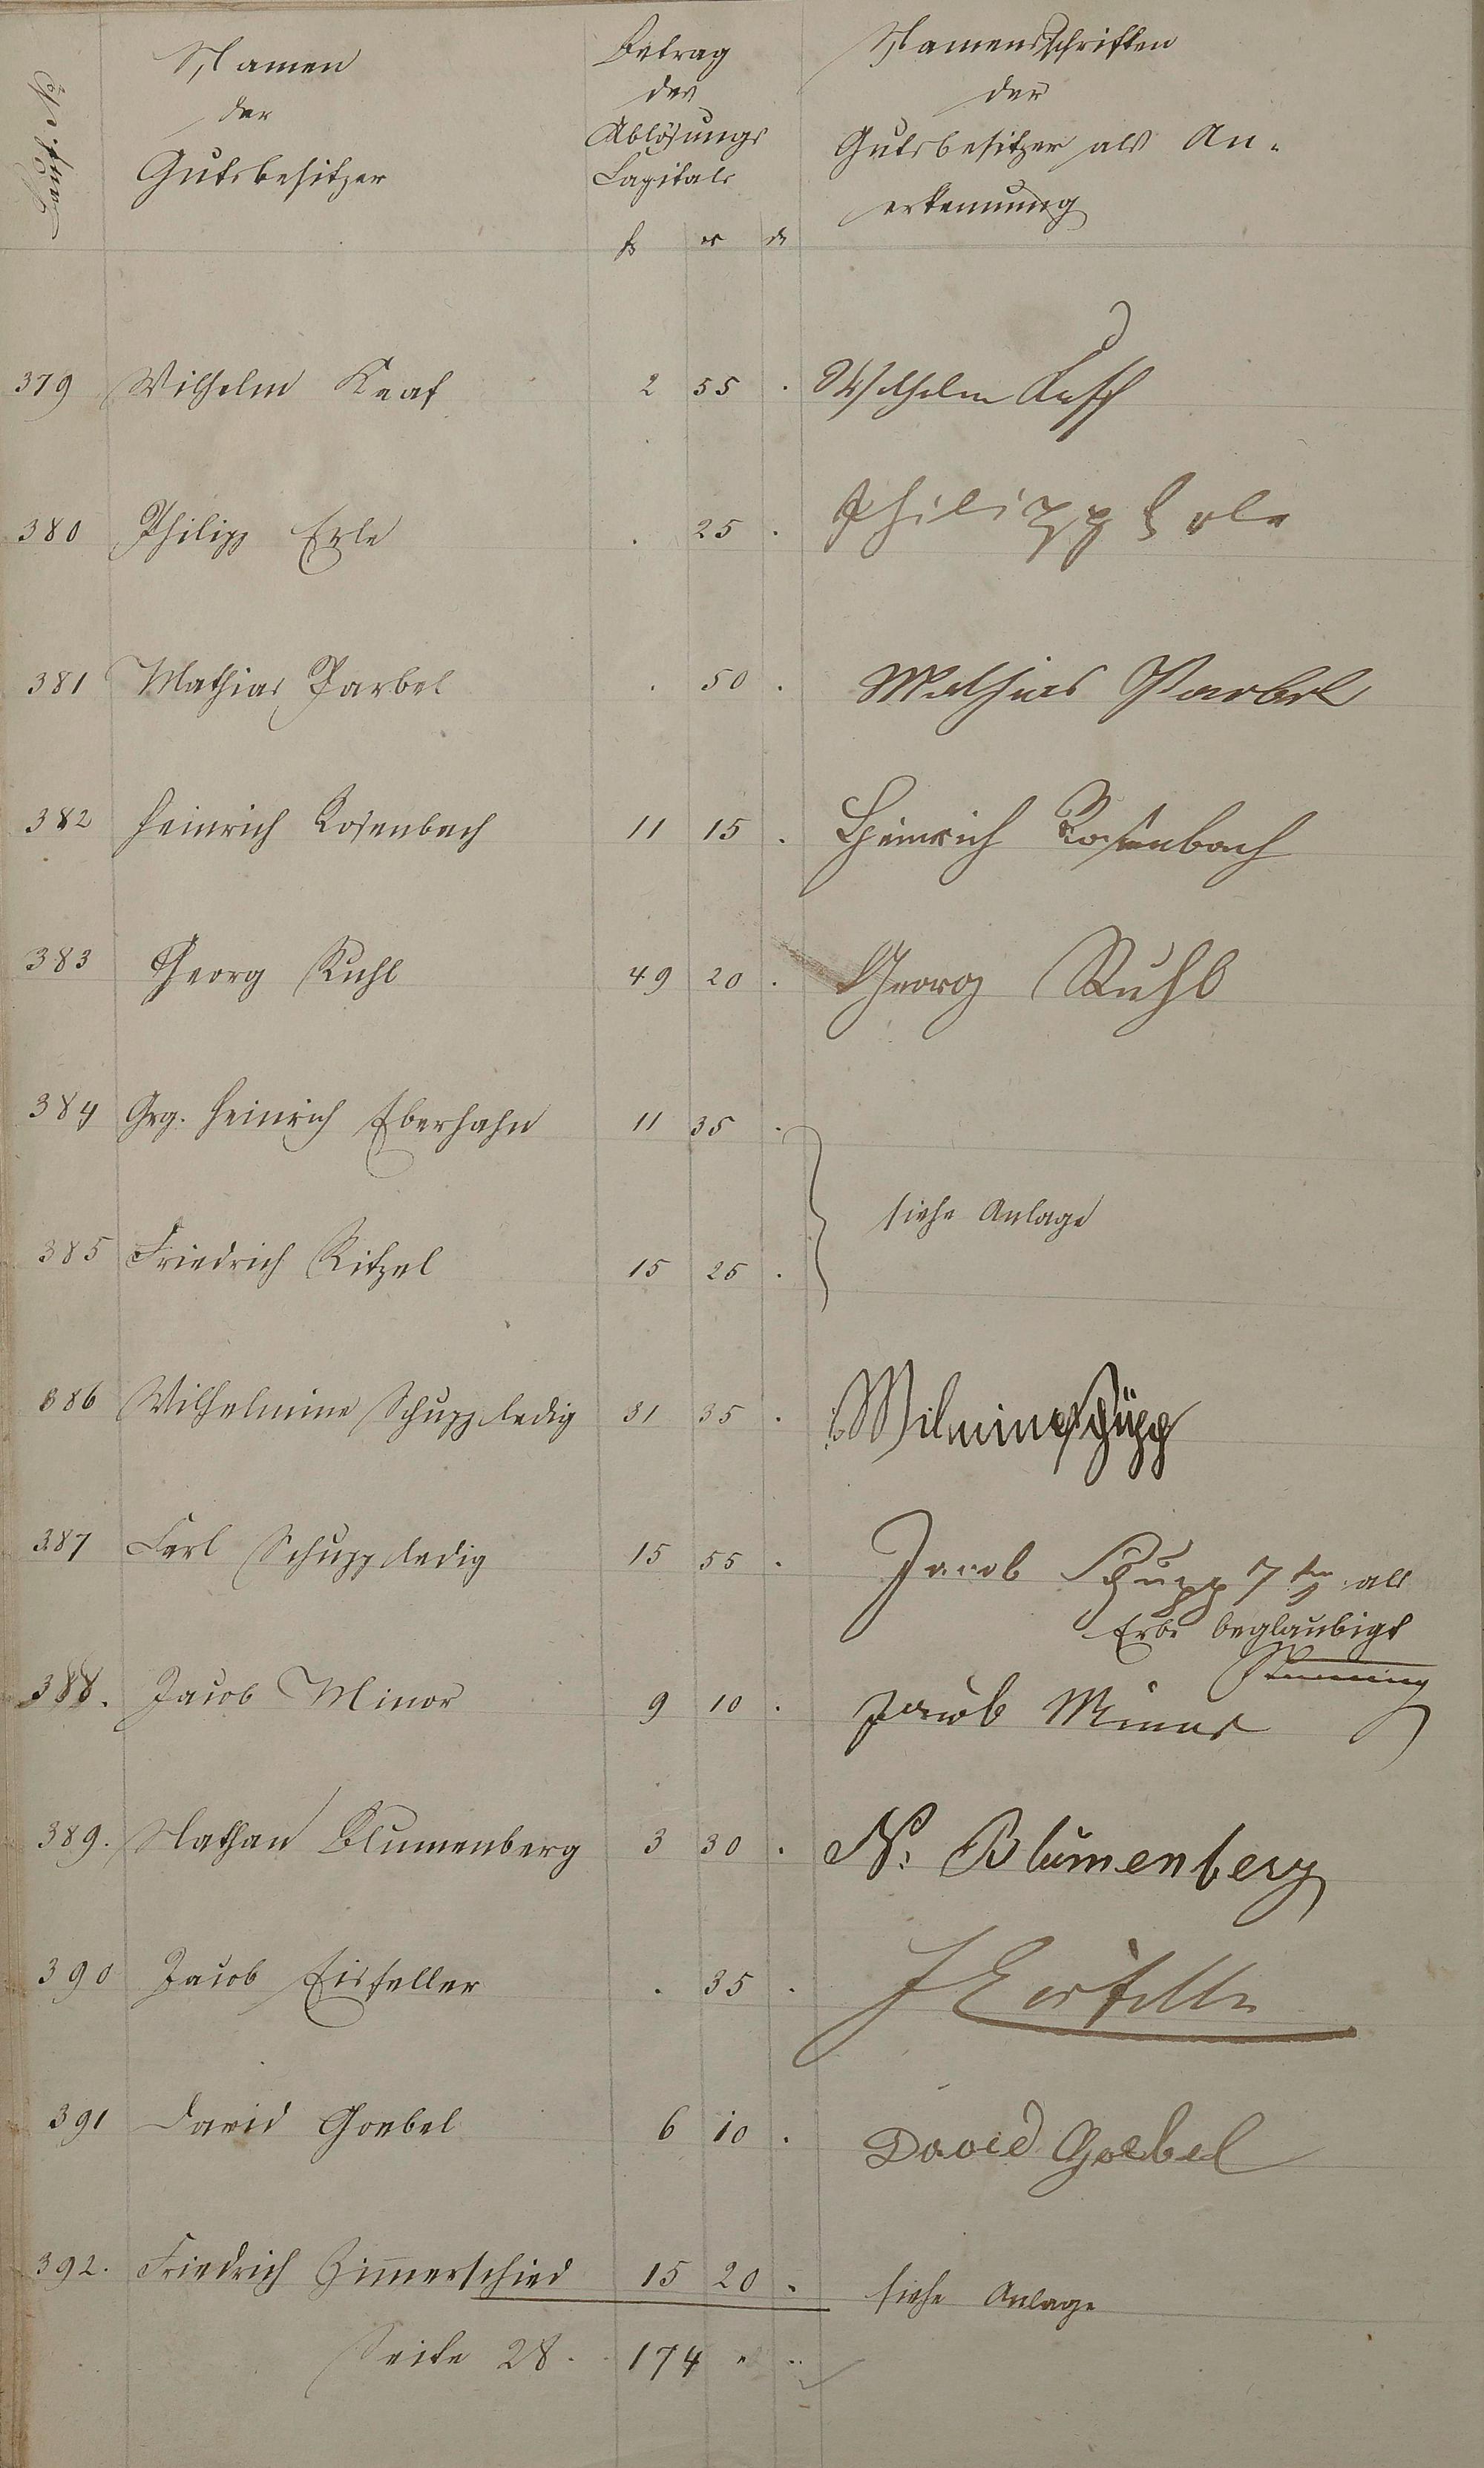 Namen
der
Gutsbesitzer
Betrag
des
Ablösungs
Capitals
Namensschriften
der
Gutsbesitzer als An-
erkennung
fl xr
379 Wilhelm Knaf 2 55 . Wilhelm
380 Philipp Erle . 25 . Philipp Erle
381 Mathias Parbel . 50 . Mathias Parbel
382 Heinrich Rosenbach 11 15 . Heinrich Rosenbach
383 Georg Ruhl 49 20 . Georg Ruhl
384 Grg. Heinrich Eberhahn 11 35 .
siehe Anlage
385 Friedrich Ritzel 15 25 .
386 Wilhelmine Schupp ledig 31 35 . Wilmine Schüpp
387 Carl Schupp ledig 15 55 . Jacob Schupp 7ter als
Erbe beglaubigt
388. Jacob Minor 9 10 . Jacob Minor
389. Nathan Blumenberg 3 30 . N. Blumenberg
390 Jacob Eisfeller . 35 . J Eisfeller
391 David Goebel 6 10 . David Goebel
392. Friedrich Zimmerschied 15 20 . siehe Anlage
Seite 28. 174 " "